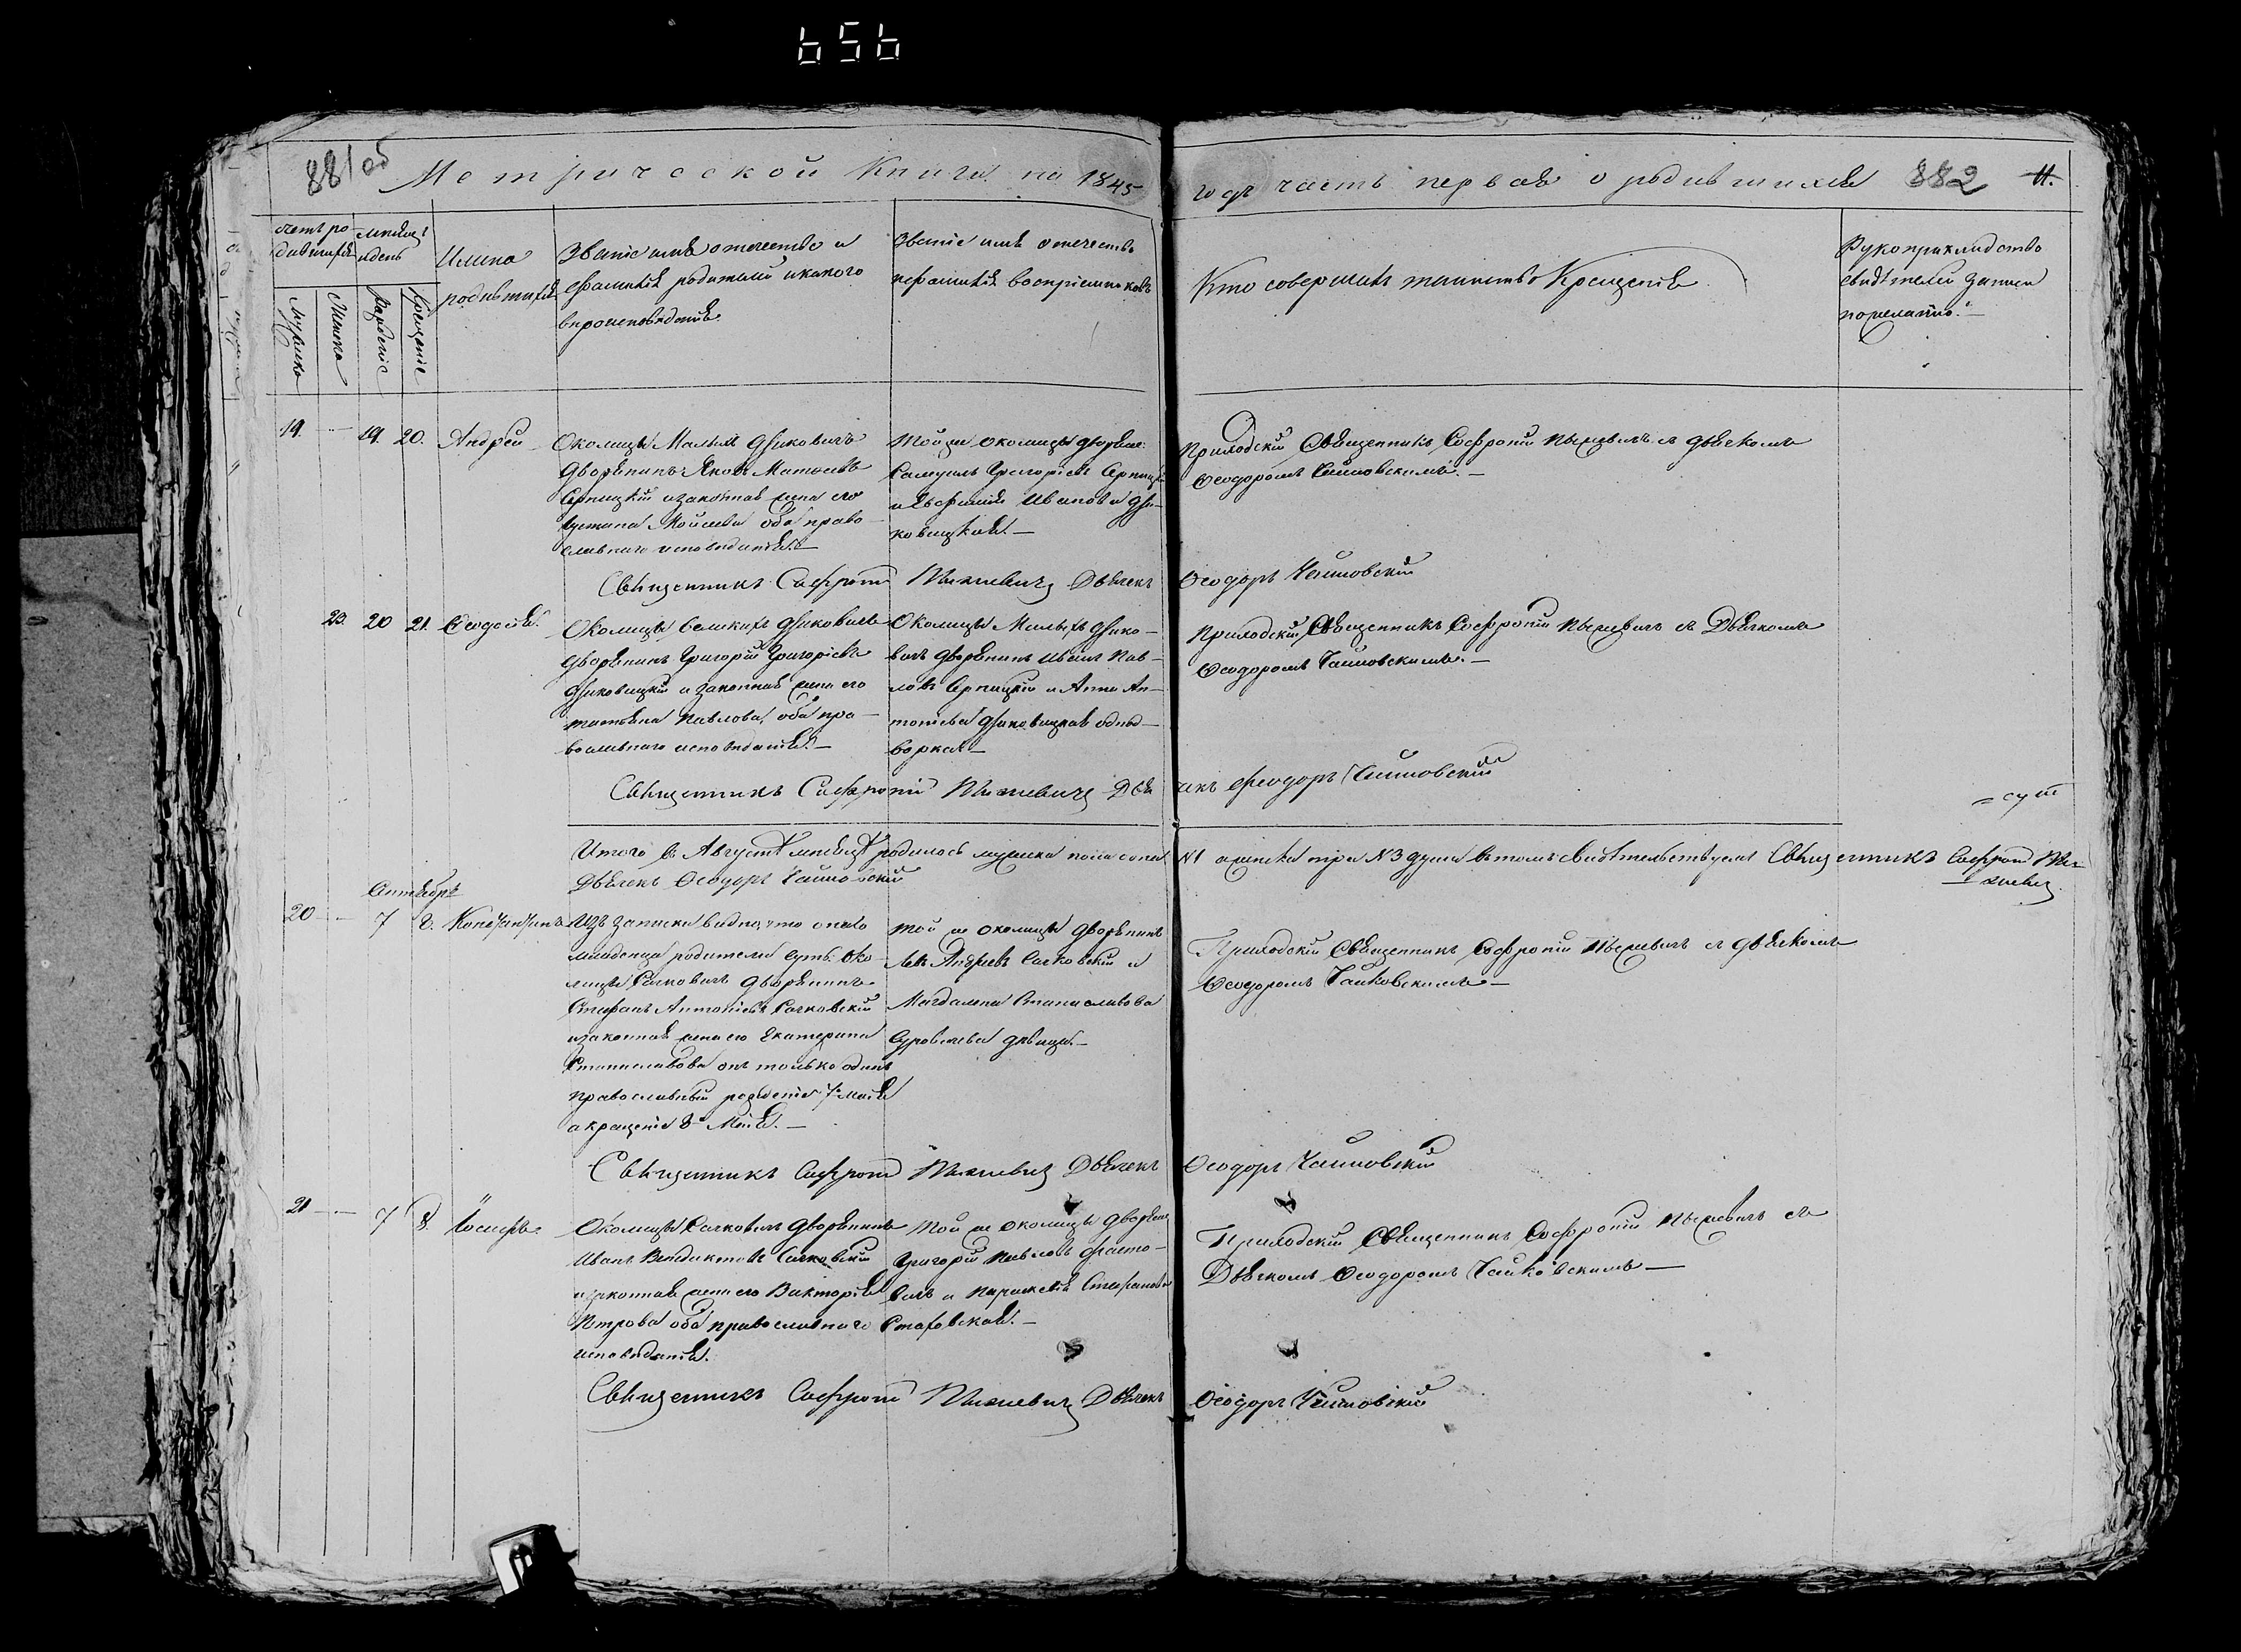 656
881об
Метрической Книги на 1845
годъ часть первая о родившихся 882 11.
счетъ ро-
дившихся
мѣсяцъ
и день
Имена
родившихся
Званіе имя отечество и
фамилія родителей и какого
вѣроисповѣданія.
Званіе имя отечество
и фамилія воспріемниковъ
Кто совершалъ таинство Крещенія
Рукоприкладство
свидѣтелей записи
по желанію.
Мужеска
Женска
Рожденіе
Крещеніе
19. 19. 20. Андрей
Околицы Малыхъ Дзиковичъ
дворянинъ Яковъ Матвѣевъ
Серницкій и законная жена его
Іустина Моисеева оба право-
славнаго исповѣданія.
Той же околицы дворян:
Самуилъ Григоріевъ Серницкій
и Евфимія Иванова Дзи-
ковицкая.
Приходскій Священникъ Софроній Пыжевичъ съ дьячкомъ
Ѳеодоромъ Чайковскимъ.
Священникъ Софроній Пыжевичъ Дьячекъ Ѳеодоръ Чайковскій
23. 20 21. Ѳеодосія.
Околицы Великихъ Дзиковичъ
дворянинъ Григорій Григоріевъ
Дзиковицкій и законная жена его
Татьяна Павлова, оба пра-
вославнаго исповѣданія.
Околицы Малыхъ Дзико-
вичъ дворянинъ Иванъ Пав-
ловъ Серницкій и Анна Ан-
тоніева Дзиковицкая однод-
ворка.
Приходскій Священникъ Софроній Пыжевичъ съ Дьячкомъ
Ѳеодоромъ Чайковскимъ.
Священникъ Софроній Пыжевичъ Дьячекъ Ѳеодоръ Чайковскій
Итого въ Августѣ мѣсяцѣ родилось мужеска пола одна №1 а женска три №3 души въ томъ свидѣтельствуемъ Священникъ Софроній Пы-
жевичъ
Дьячекъ Ѳеодоръ Чайковскій
Сентябрь
20 7 8. Константинъ
Изъ записки видно, что онаго
младенца родители суть: Око-
лицы Сачковичъ дворянинъ
Стефанъ Антоніевъ Сачковскій
и законная жена его Екатерина
Станиславова онъ только одинъ
православный рожденіе 7 Маія
а крещеніе 8 Маія.
Той же околицы дворянинъ
Левъ Андреевъ Сачковскій и
Магдалена Станиславова
дѣвица.
Приходскій Священникъ Софроній Пыжевичъ съ дьячкомъ
Ѳеодоромъ Чайковскимъ
Священникъ Софроній Пыжевичъ Дьячекъ Ѳеодоръ Чайковскій
21 7 8. Іосифъ.
Околицы Сачковичъ дворянинъ
Иванъ Венедиктовъ Сачковскій
и законная жена его Викторія
Петрова оба православнаго
исповѣданія.
Той же околицы дворян
Григорій Павловъ
и Параскевія Стефанова
Приходскій Священникъ Софроній Пыжевичъ съ
Дьячкомъ Ѳеодоромъ Чайковскимъ
Священникъ Софроній Пыжевичъ Дьячекъ Ѳеодоръ Чайковскій